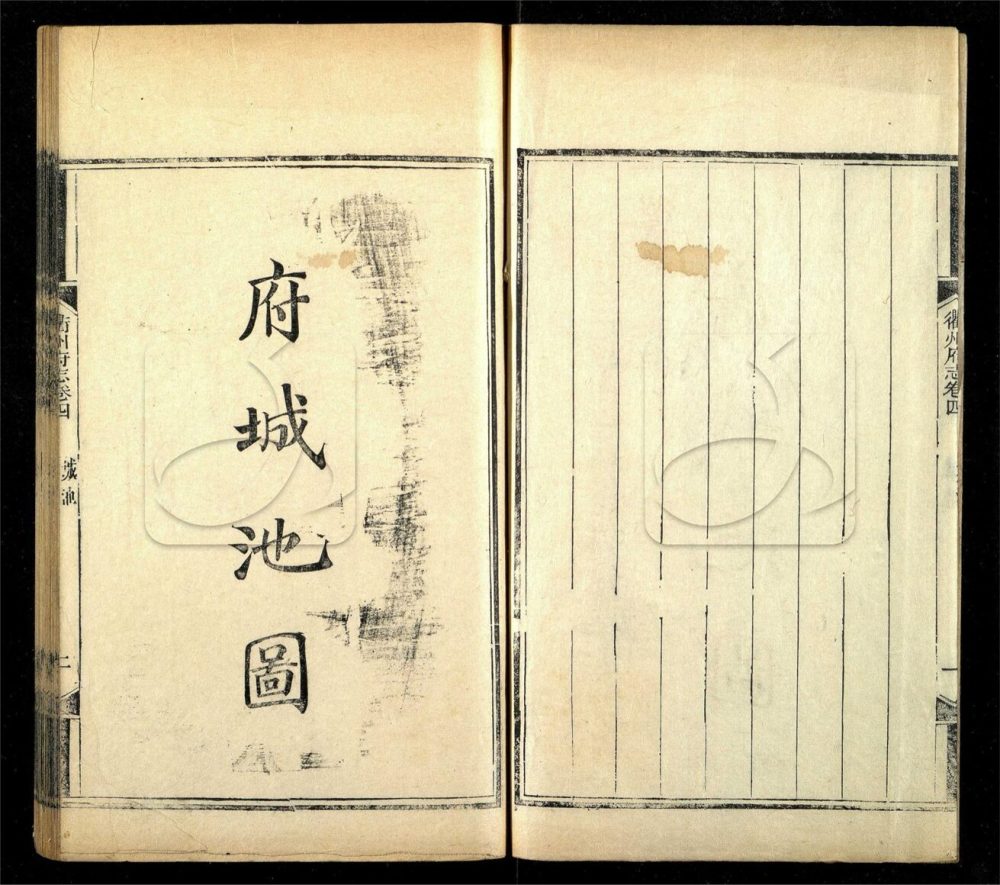 衢州府志卷四
一
府城池圖
衢州府志卷四
城池
二